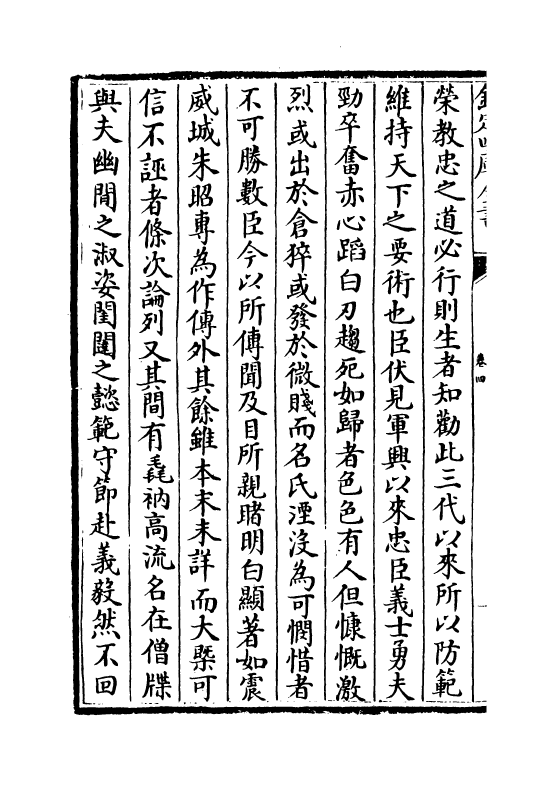 榮教忠之道必行則生者知勸此三代以來所以防範
維持天下之要術也臣伏見軍興以來忠臣義士勇夫
勁卒奮赤心蹈白刃趨死如歸者色色有人但慷慨激
烈或出於倉猝或發於微賤而名氏湮沒為可憫惜者
不可勝數臣今以所傳聞及目所親睹明白顯著如震
威城朱昭專為作傳外其餘雖本末未詳而大槩可
信不誣者條次論列又其間有毳衲高流名在僧牒
與夫幽閒之淑姿閨闥之懿範守節赴義毅然不回
卷四